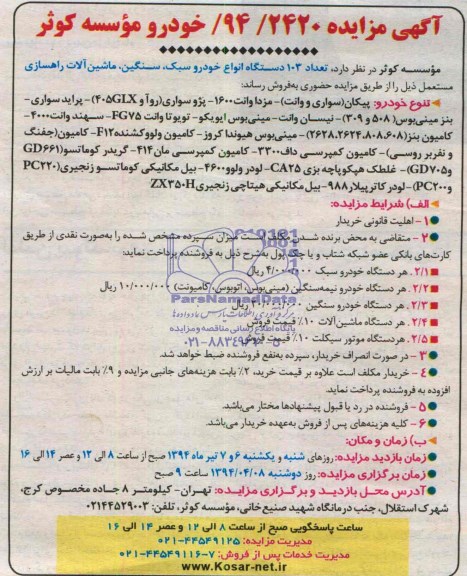 آگهی مزایده ۲۴۲۰/ ۹۴/ خودرو مؤسسه کوثر
مؤسسه کوثر در نظر دارد، تعداد ۱۰۳ دستگاه انواع خودرو سبک، سنگین، ماشین آلات راهسازی
مستعمل ذیل را از طریق مزایده حضوری به‌فروش رساند:
تنوع خودرو: پیکان(سواری و وانت)- مزدا وانت۱۶۰۰- پژو سواری(روآ و ۴۰۵GLX)- پراید سواری-
بنز مینی‌بوس( ۵۰۸ و ۳۰۹)- نیسان وانت- مینی‌بوس ایویکو- تویوتا وانت FG۷۵- سهند وانت۴۰۰۰-
کامیون بنز(۲۶۲۸.۲۶۲۴.۸۰۸.۶۰۸)- مینی‌بوس هیوندا کروز- کامیون ولووکشنده F۱۲- کامیون(جفنگ
و نفربر روسی)- کامیون کمپرسی داف۳۳۰۰- کامیون کمپرسی مان۴۱۴- گریدر کوماتسو(GD۶۶۱
وGD۷۰۵)- غلطک هپکوپاچه بزی CA۲۵- لودر ولوو۴۶۰۰- بیل مکانیکی کوماتسو زنجیری(PC۲۲۰
وPC۲۰۰)- لودر کاترپیلار ۹۸۸- بیل مکانیکی هیتاچی زنجیریZX۳۵۰H
الف) شرایط مزایده:
۱- اهلیت قانونی خریدار
۲- متقاضی به محض برنده شدن مکلف است میزان سپرده مشخص شده را به‌صورت نقدی از طریق
کارت‌های بانکی عضو شبکه شتاب و یا چک پول به‌شرح ذیل به فروشنده پرداخت نماید:
۲/۱. هر دستگاه خودرو سبک ۴/۰۰۰/۰۰۰ ریال
۲/۲. هر دستگاه خودرو نیمه‌سنگین (مینی‌بوس، اتوبوس، کامیونت) ۱۰/۰۰۰/۰۰۰ ریال
۲/۳. هر دستگاه خودرو سنگین ریال
۲/۴. هر دستگاه ماشین آلات ۱۰٪ قیمت فروش
۲/۵. هر دستگاه موتور سیکلت ۱۰٪ قیمت فروش
۳- در صورت انصراف خریدار، سپرده به‌نفع فروشنده ضبط خواهد شد.
۴- خریدار مکلف است علاوه بر قیمت خرید، ۲٪ بابت هزینه‌های جانبی مزایده و ۹٪ بابت مالیات بر ارزش
افزوده به فروشنده پرداخت نماید.
۵- فروشنده در رد یا قبول پیشنهادها مختار می‌باشد.
۶- کلیه هزینه‌های پس از فروش به‌عهده خریدار می‌باشد.
ب) زمان و مکان:
زمان بازدید مزایده: روزهای شنبه و یکشنبه ۶ و ۷ تیر ماه ۱۳۹۴ صبح از ساعت ۸ الی ۱۲ و عصر ۱۴ الی ۱۶
زمان برگزاری مزایده: روز دوشنبه ۱۳۹۴/۰۴/۰۸ ساعت ۹ صبح
آدرس محل بازدید و برگزاری مزایده: تهران- کیلومتر ۸ جاده مخصوص کرج،
شهرک استقلال، جنب درمانگاه شهید صنیع‌خانی، مؤسسه کوثر، تلفن: ۰۲۱۴۴۵۲۹۰۰۳
ساعت پاسخگویی صبح از ساعت ۸ الی ۱۲ و عصر ۱۴ الی ۱۶
مدیریت مزایده: ۴۴۵۴۹۱۲۵-۰۲۱
مدیریت خدمات پس از فروش: ۷-۴۴۵۴۹۱۱۶-۰۲۱
www.Kosar-net.ir
ParsNamadData
پایگاه اطلاع رسانی مناقصه و مزایده